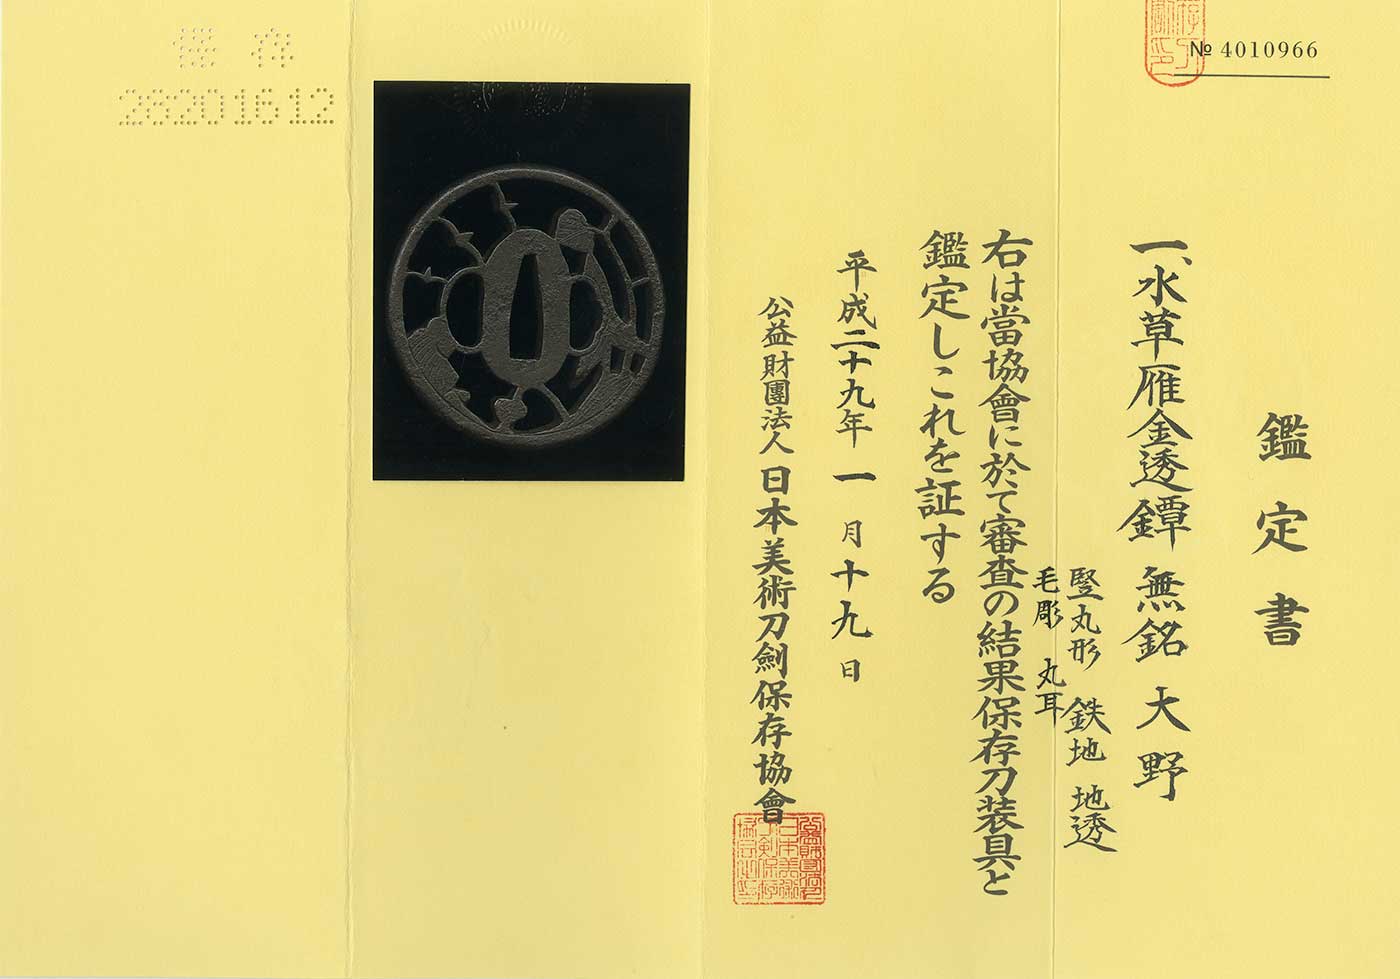 № 4010966
鑑定書
一、水草雁金透鐔 無銘 大野
竪丸形 鉄地 地透
毛彫 丸耳
右は當協會に於て審査の結果保存刀装具と
鑑定しこれを証する
平成二十九年一月十九日
公益財團法人日本美術刀劍保存協會
保存
28201612